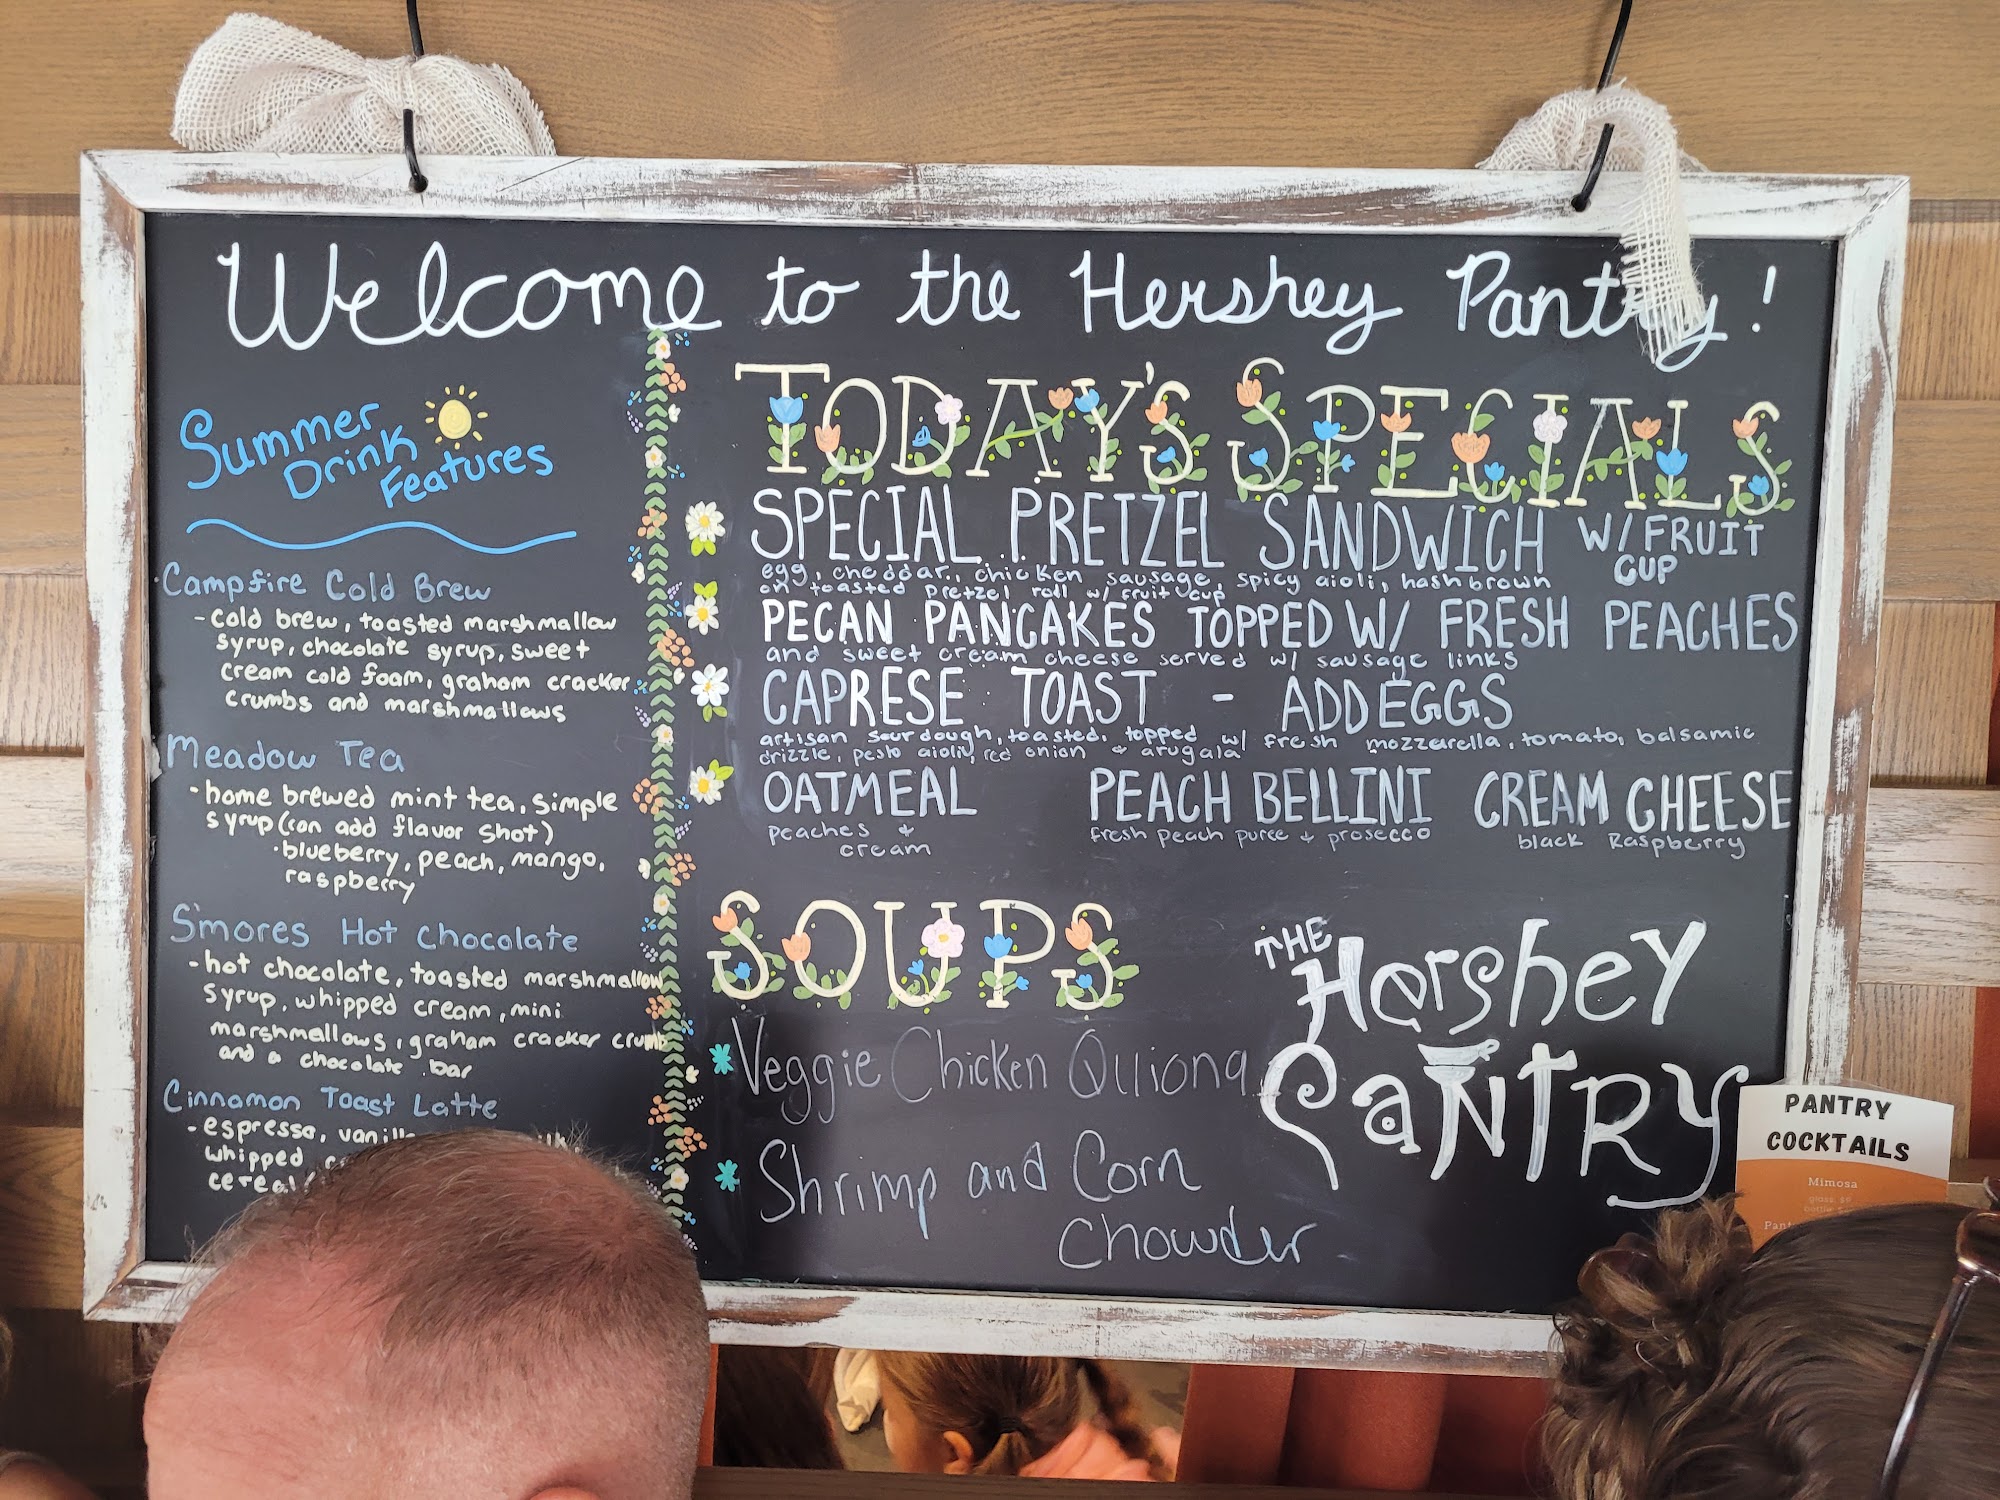 Welcome to the Hershey Pantry!
Summer
Drink
Features
Campfire Cold Brew
- cold brew, toasted marshmallow
syrup, chocolate syrup, sweet
cream cold foam, graham cracker
crumbs and marshmallows
Meadow Tea
• home brewed mint tea, simple
syrup (can add flavor shot)
• blueberry, peach, mango,
raspberry
S'mores Hot Chocolate
- hot chocolate, toasted marshmallow
syrup, whipped cream, mini
marshmallows, graham cracker crumb
and a chocolate bar
Cinnamon Toast Latte
- espresso,
whipped
cereal
TODAY'S SPECIALS
SPECIAL PRETZEL SANDWICH W/ FRUIT
CUP
egg, cheddar, chicken sausage, spicy aioli, hashbrown
on toasted pretzel roll w/ fruit cup
PECAN PANCAKES TOPPED W/ FRESH PEACHES
and sweet cream cheese served w/ sausage links
CAPRESE TOAST - ADD EGGS
artisan sourdough, toasted, topped w/ fresh mozzarella, tomato, balsamic
drizzle, pesto aioli, red onion & arugala
OATMEAL
peaches &
cream
PEACH BELLINI
fresh peach puree & prosecco
CREAM CHEESE
black Raspberry
SOUPS
Veggie Chicken Quiona
Shrimp and Corn
Chowder
THE
Hershey
PaNTRY
PANTRY
COCKTAILS
Mimosa
glass: $9